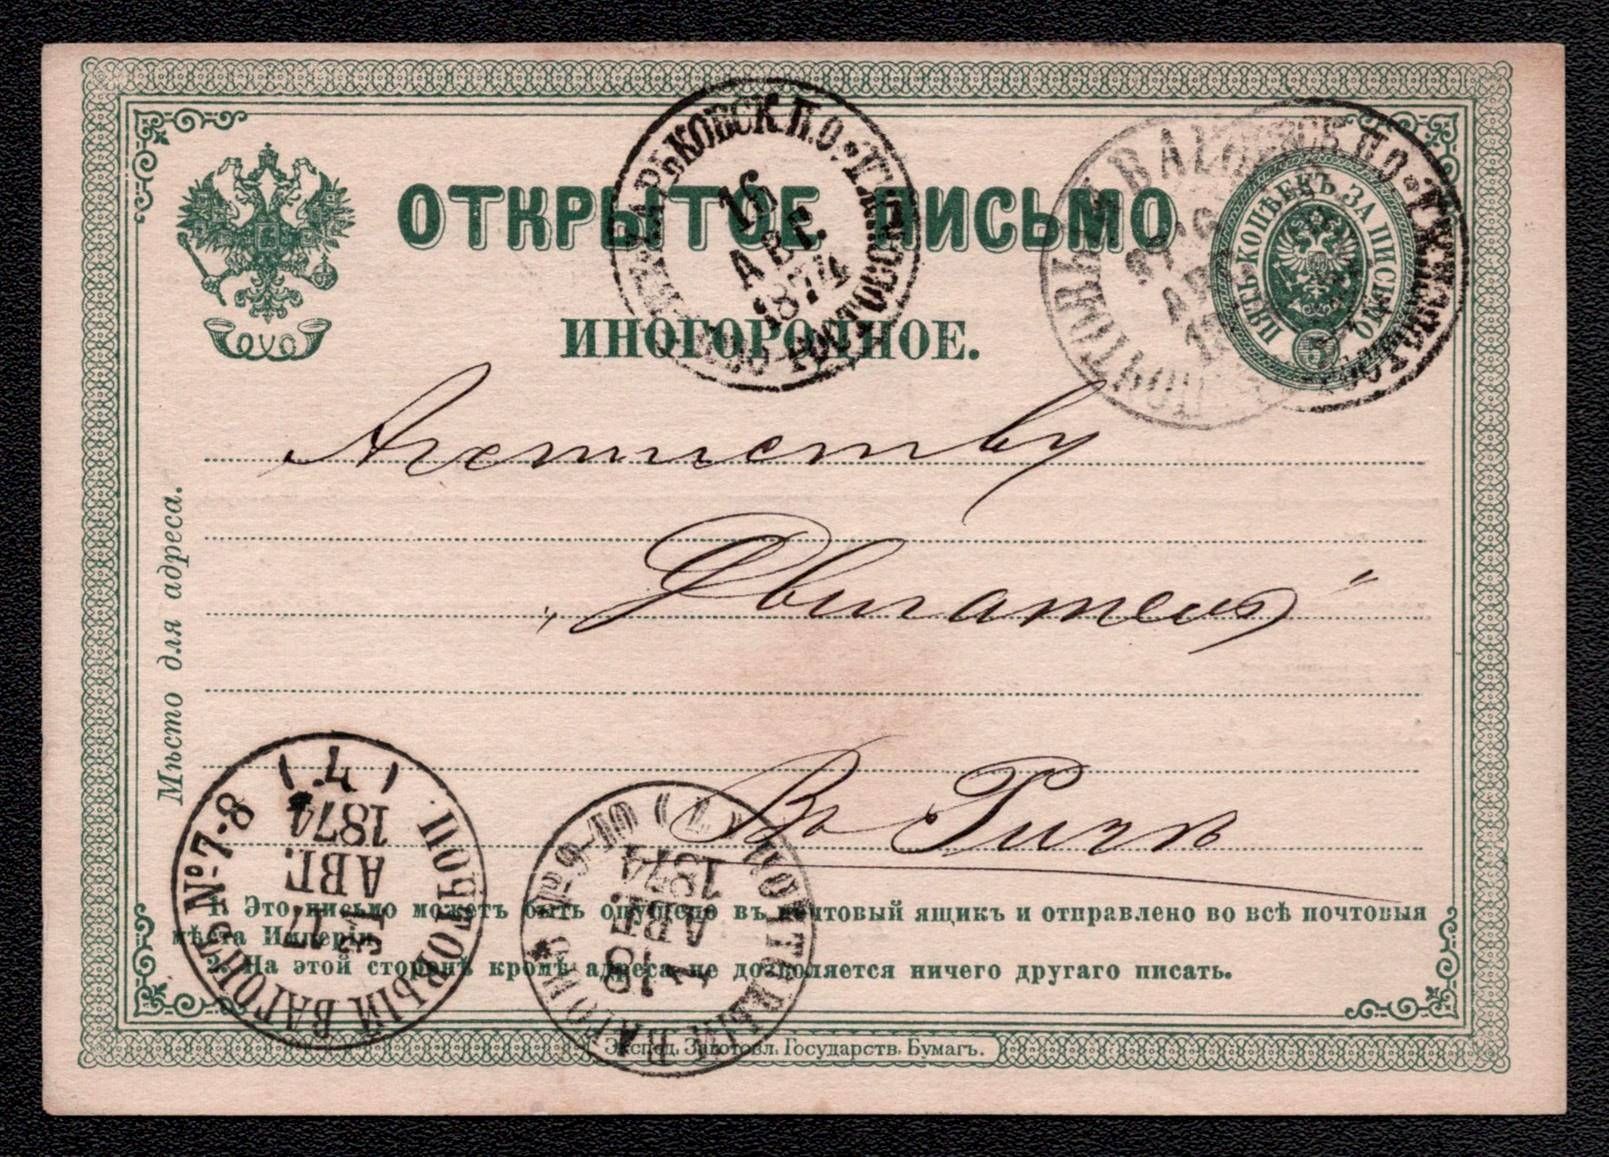 ОТКРЫТОЕ ПИСЬМО
ИНОГОРОДНОЕ.
ПЯТЬ КОПѢЕКЪ ЗА ПИСЬМО
5
16
АВГ.
1874
Мѣсто для адреса.
Агентству
„Двигатель"
Въ Ригѣ
ПОЧТОВЫЙ ВАГОНЪ № 7-8 (7)
17
АВГ.
1874
ПОЧТОВЫЙ ВАГОНЪ № 9-10
18
АВГ.
1874
1. Это письмо можетъ быть опущено въ почтовый ящикъ и отправлено во всѣ почтовыя
мѣста Имперіи.
2. На этой сторонѣ кромѣ адреса не дозволяется ничего другаго писать.
Экспед. Заготовл. Государств. Бумагъ.